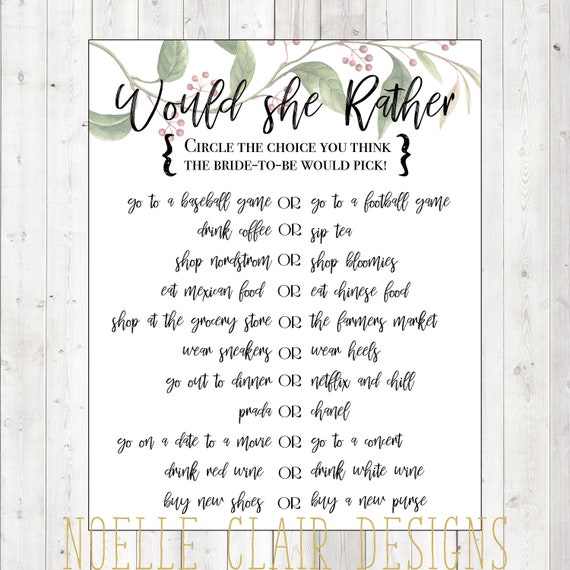 Would she Rather
{ Circle the choice you think
the bride-to-be would pick! }
go to a baseball game OR go to a football game
drink coffee OR sip tea
shop nordstrom OR shop bloomies
eat mexican food OR eat chinese food
shop at the grocery store OR the farmers market
wear sneakers OR wear heels
go out to dinner OR netflix and chill
prada OR chanel
go on a date to a movie OR go to a concert
drink red wine OR drink white wine
buy new shoes OR buy a new purse
NOELLE CLAIR DESIGNS